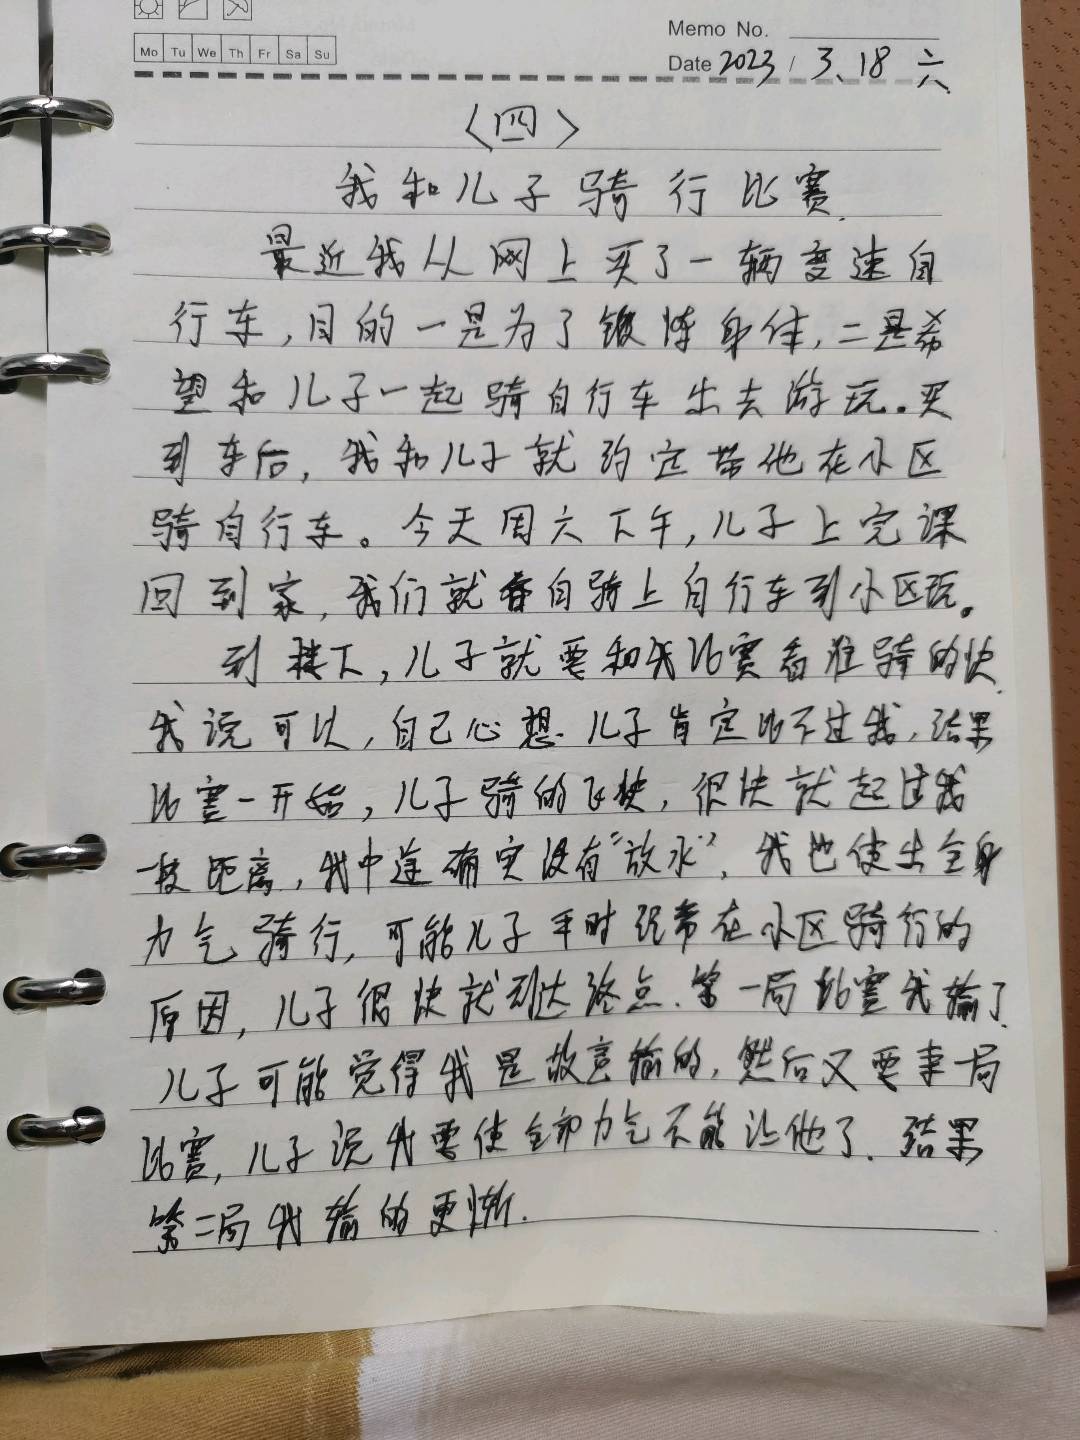 Memo No.
Mo Tu We Th Fr Sa Su
Date 2023 / 3、18 六
〈四〉
我和儿子骑行比赛.
最近我从网上买了一辆变速自
行车,目的一是为了锻炼身体,二是希
望和儿子一起骑自行车出去游玩。买
到车后,我和儿子就约定带他在小区
骑自行车。今天周六下午,儿子上完课
回到家,我们就各自骑上自行车到小区玩。
到楼下,儿子就要和我比赛看谁骑的快.
我说可以,自己心想.儿子肯定比不过我,结果
比赛一开始,儿子骑的飞快,很快就超过我
一段距离,我中途确实没有“放水”,我也使出全身
力气骑行,可能儿子平时经常在小区骑行的
原因,儿子很快就到达终点.第一局比赛我输了.
儿子可能觉得我是故意输的,然后又要来一局
比赛,儿子说我要使全部力气不能让他了.结果
第二局我输的更惨.